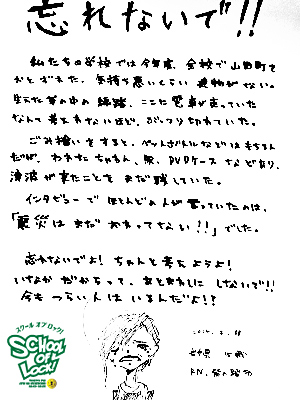 忘れないで!!
私たちの学校では今年度、全校で山田町を
おとずれた。気持ち悪いくらい建物がない。
生えた草の中の線路、ここに電車が走っていた
なんて考えれないほど、ぶっつり切れていた。
ごみ拾いをすると、ペットボトルなどはもちろん
だが、われたちゃわん、服、DVDケースなどがあり、
津波が来たことをまだ残していた。
インタビューでほとんどの人が言っていたのは、
「震災はまだおわってない!!」でした。
忘れないでよ!ちゃんと考えようよ!
いなかだからって、あとまわしにしないで!!
今もつらい人はいるんだよ!?
スクール オブ ロック!
SCHOOL
OF
LOCK!
岩手県 15歳